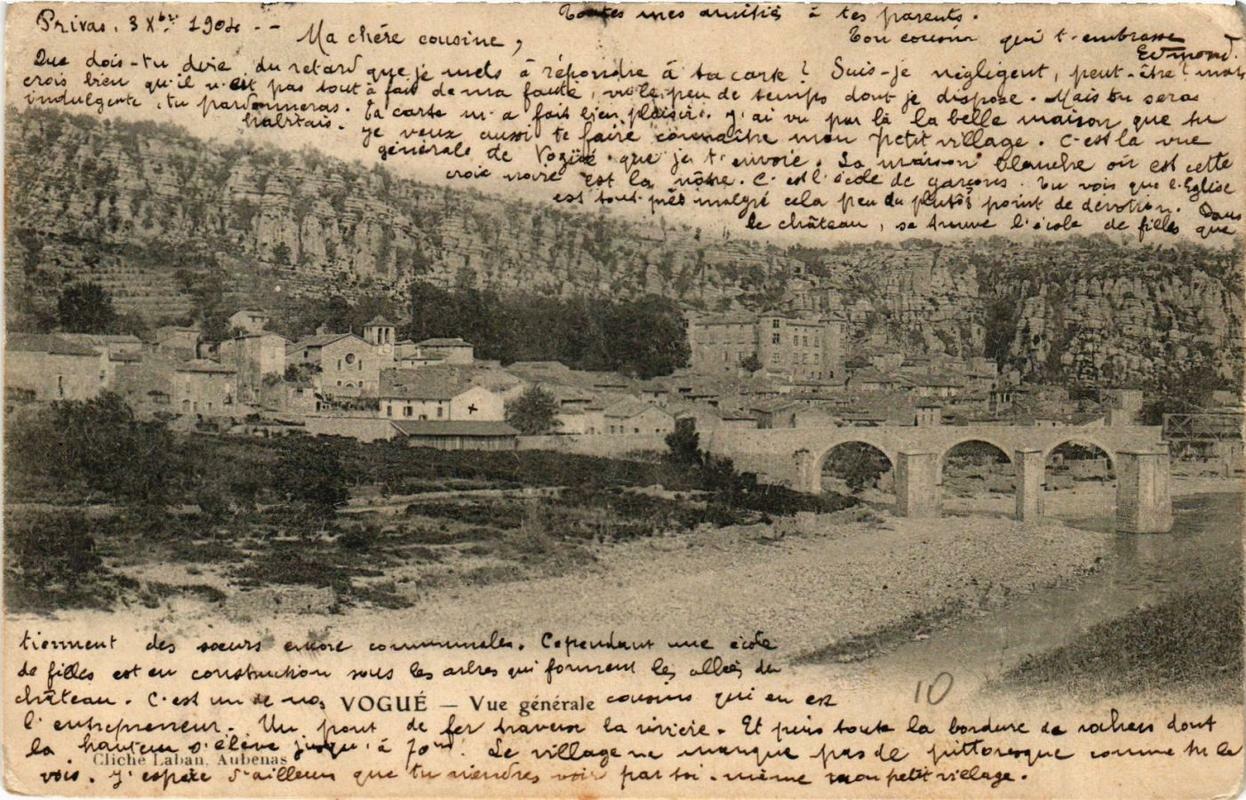 Privas, 3 Xbre 1904 -- Ma chère cousine,
Que dois-tu dire du retard que je mets à répondre à ta carte ? Suis-je négligent, peut-être ! mais
crois bien qu'il n'est pas tout à fait de ma faute, vu le peu de temps dont je dispose. Mais tu seras
indulgente, tu pardonneras. Ta carte m'a fait bien plaisir. J'ai vu par là la belle maison que tu
habitais. Je veux aussi te faire connaître mon petit village. C'est la vue
générale de Vogüé que je t'envoie. La maison blanche où est cette
croix noire est la nôtre. C'est l'école de garçons. Tu vois que l'Eglise
est tout près malgré cela peu ou plutôt point de dévotion. Dans
le château, se trouve l'école de filles que
tiennent des sœurs encore communales. Cependant une école
de filles est en construction sous les arbres qui forment les allées du
château. C'est un de nos cousins qui en est
l'entrepreneur. Un pont de fer traverse la rivière. Et puis toute la bordure de rochers dont
la hauteur s'élève jusqu'à 70m. Le village ne manque pas de pittoresque comme tu le
vois. J'espère d'ailleurs que tu viendras voir par toi-même mon petit village.
Toutes mes amitiés à tes parents.
Ton cousin qui t'embrasse
Edmond.
10
VOGUÉ — Vue générale
Cliché Laban, Aubenas